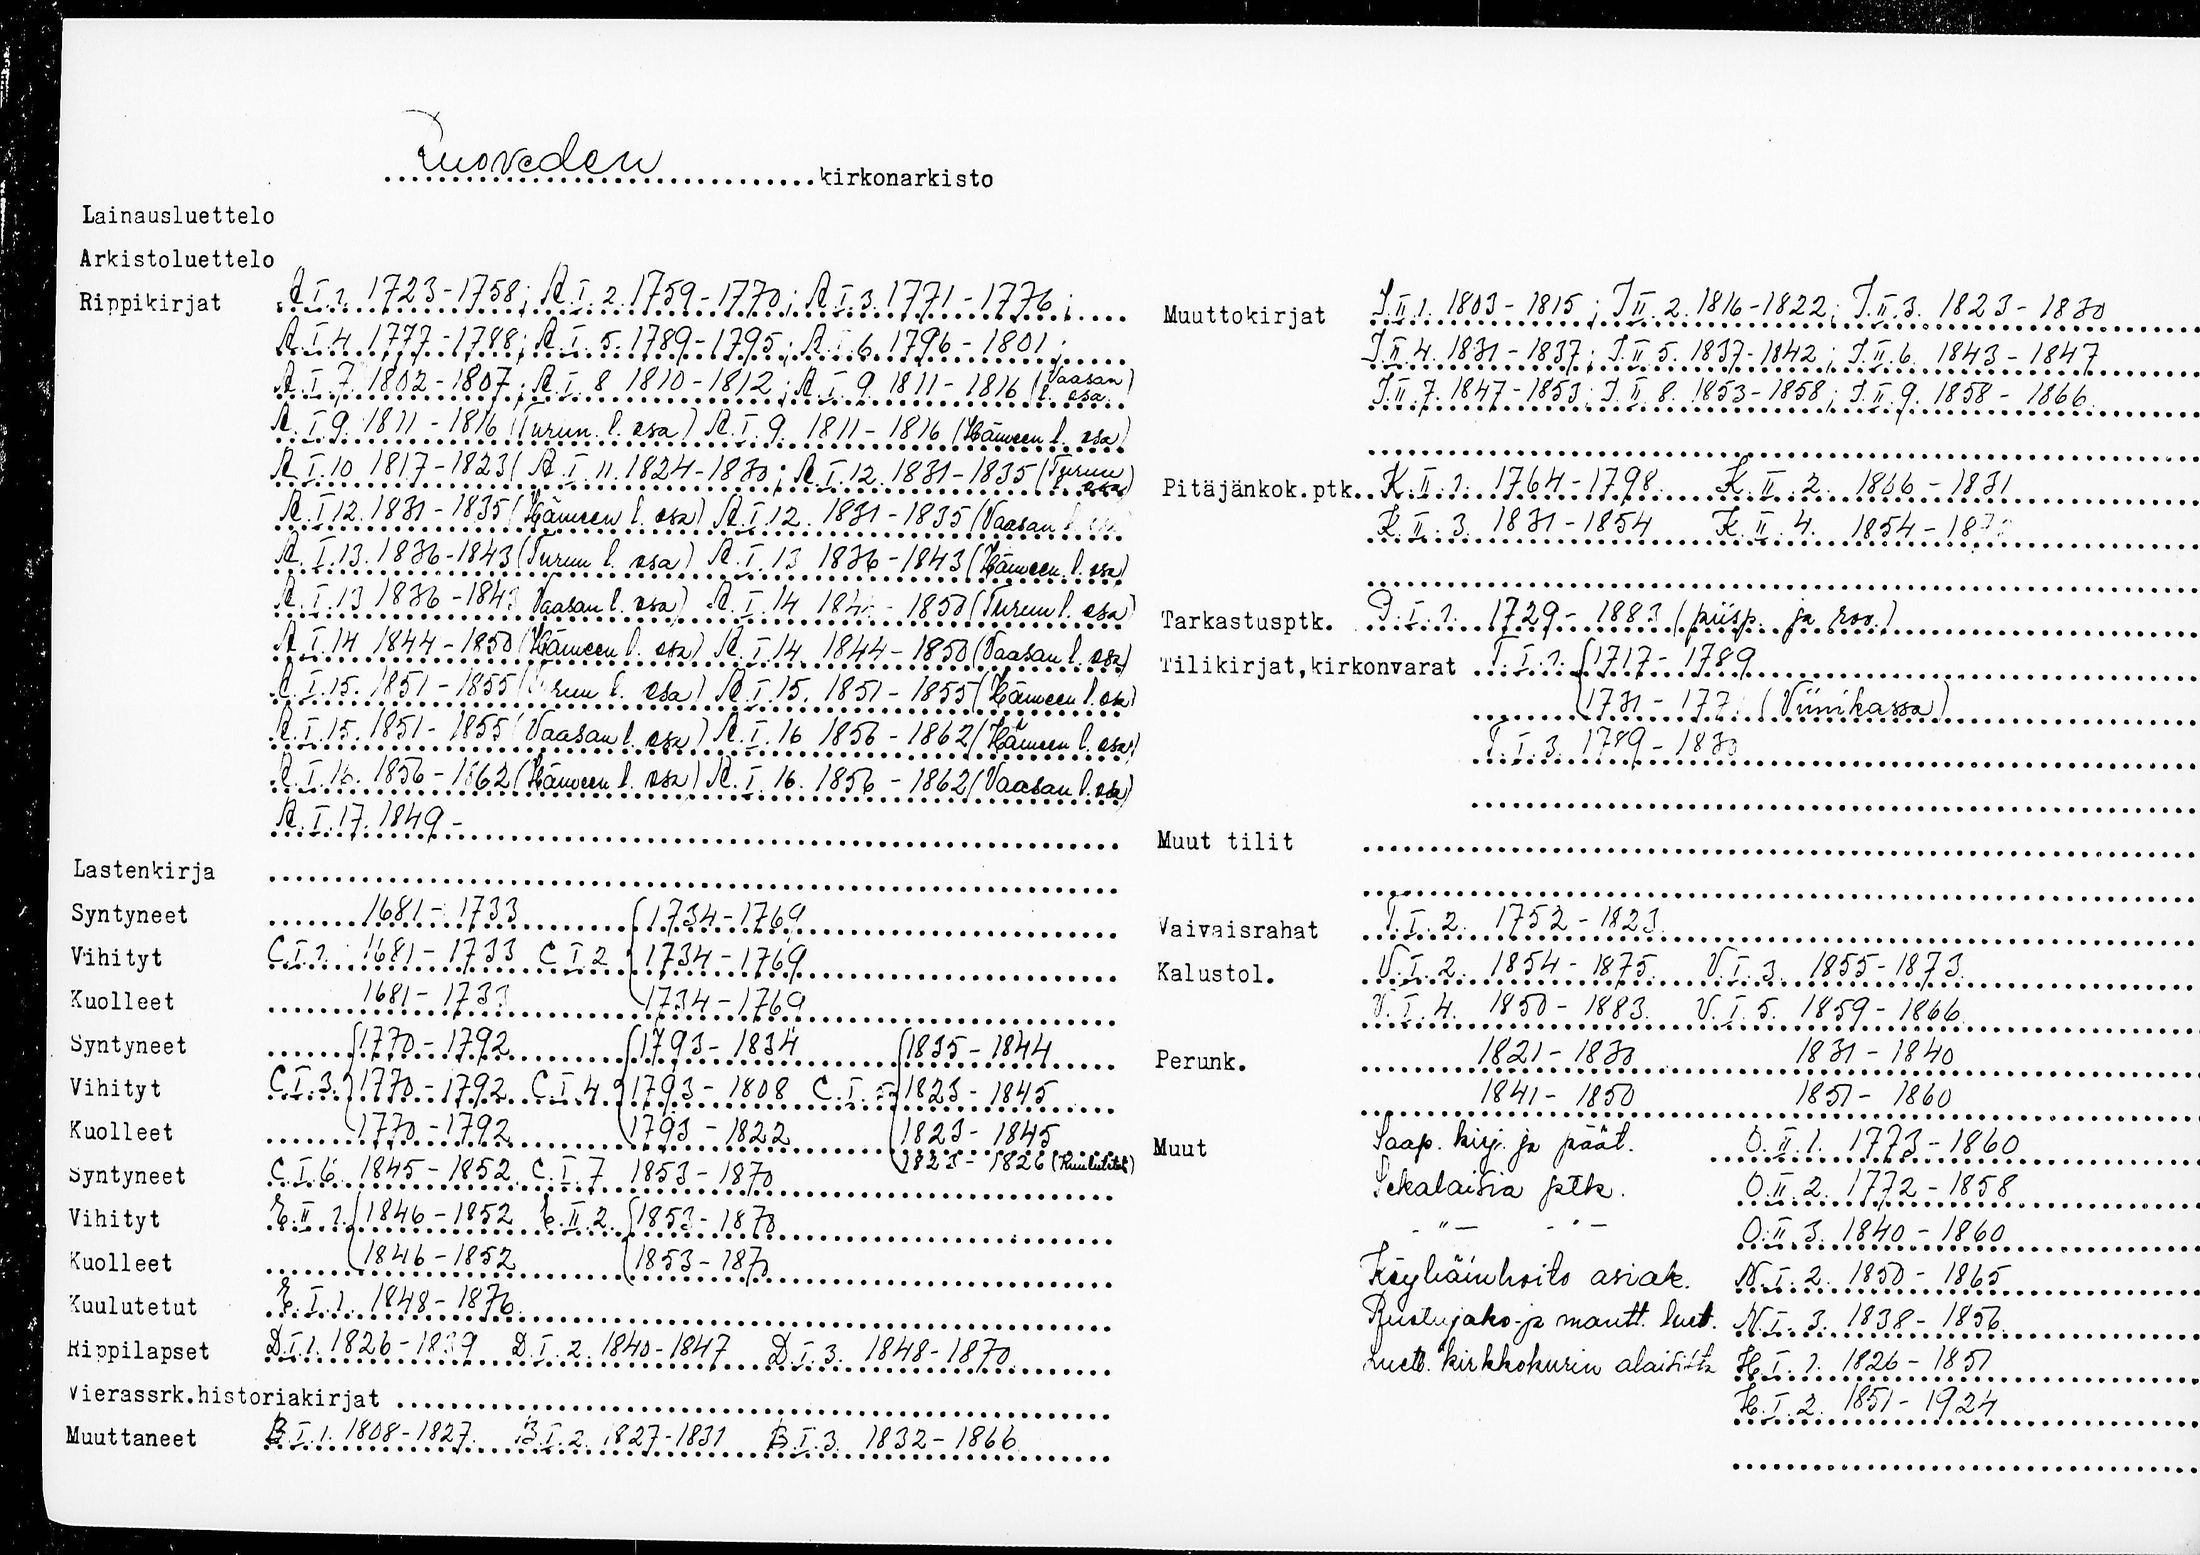 Ruoveden kirkonarkisto
Lainausluettelo
Arkistoluettelo
Rippikirjat A.I.1. 1723-1758; A.I.2. 1759-1770; A.I.3. 1771-1776;
A.I.4. 1777-1788; A.I.5. 1789-1795; A.I.6. 1796-1801;
A.I.7. 1802-1807; A.I.8 1810-1812; A.I.9. 1811-1816 (Vaasan l. osa)
A.I.9. 1811-1816 (Turun l. osa) A.I.9. 1811-1816 (Hämeen l. osa)
A.I.10 1817-1823( A.I.11. 1824-1830; A.I.12. 1831-1835 (Turun l. osa)
A.I.12. 1831-1835 (Hämeen l. osa) A.I.12. 1831-1835 (Vaasan l.
A.I.13. 1836-1843 (Turun l. osa) A.I.13 1836-1843 (Hämeen l. osa)
A.I.13 1836-184 Vaasan l. osa) A.I.14 184 - 1850 (Turun l. osa)
A.I.14 1844-1850 (Hämeen l. osa) A.I.14. 1844-1850 (Vaasan l. osa)
A.I.15. 1851-1855 (Turun l. osa) A.I.15. 1851-1855 (Hämeen l. osa)
A.I.15. 1851-1855 (Vaasan l. osa) A.I.16 1856-1862 (Hämeen l. osa)
A.I.16. 1856-1862 (Hämeen l. osa) A.I.16. 1856-1862 (Vaasan l. osa)
A.I.17. 1849-
Lastenkirja
Syntyneet 1681-1733 1734-1769
Vihityt C.I.1. 1681-1733 C.I.2 1734-1769
Kuolleet 1681-1733 1734-1769
Syntyneet 1770-1792 1793-1834 1835-1844
Vihityt C.I.3. 1770-1792 C.I.4 1793-1808 C.I.5 1823-1845
Kuolleet 1770-1792 1793-1822 1823-1845
1823-1826 (Kuulutetut)
Syntyneet C.I.6. 1845-1852 C.I.7 1853-1870
Vihityt E.II.1. 1846-1852 E.II.2. 1853-1870
Kuolleet 1846-1852 1853-1870
Kuulutetut E.I.1. 1848-1876
Rippilapset D.I.1. 1826-1839 D.I.2. 1840-1847 D.I.3. 1848-1870
Vierassrk.historiakirjat
Muuttaneet B.I.1. 1808-1827. B.I.2. 1827-1831 B.I.3. 1832-1866
Muuttokirjat J.II.1. 1803-1815; J.II.2. 1816-1822; J.II.3. 1823-1830
J.II.4. 1831-1837; J.II.5. 1837-1842; J.II.6. 1843-1847
J.II.7. 1847-1853; J.II.8. 1853-1858; J.II.9. 1858-1866
Pitäjänkok.ptk. K.II.1. 1764-1798. K.II.2. 1806-1831
K.II.3. 1831-1854 K.II.4. 1854-18
Tarkastusptk. J.I.1. 1729-1883 (piisp. ja rov.)
Tilikirjat,kirkonvarat T.I.1. 1717-1789
1731-177 (Viinikassa)
T.I.3. 1789-1830
Muut tilit
Vaivaisrahat T.I.2. 1752-1823
Kalustol. V.I.2. 1854-1875. V.I.3. 1855-1873
V.I.4. 1850-1883. V.I.5. 1859-1866
Perunk. 1821-1830 1831-1840
1841-1850 1851-1860
Muut Saap. kirj. ja päät. O.II.1. 1773-1860
Sekalaisia ptk. O.II.2. 1772-1858
-"- -"- O.II.3. 1840-1860
Köyhäinhoito asiak. N.I.2. 1850-1865
Ruotujako-ja mantt. luet. N.I.3. 1838-1856
Luett. kirkkokurin alaisista H.I.1. 1826-1851
H.I.2. 1851-1924